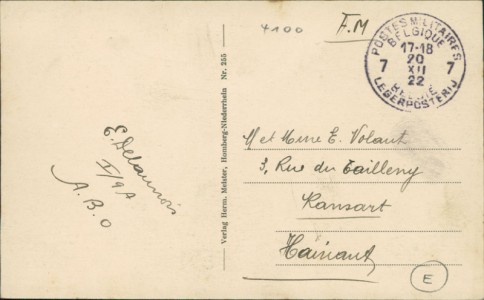 4100
F.M
POSTES MILITAIRES
BELGIQUE
17-18
20
7 XII 7
22
BELGIE
LEGERPOSTERIJ
E. Delaunois
I/9A
A.B.O
Verlag Herm. Mehler, Homberg-Niederrhein Nr. 255
M et Mme E. Volant
3, Rue du Tailleny
Ransart
Hainaut
E